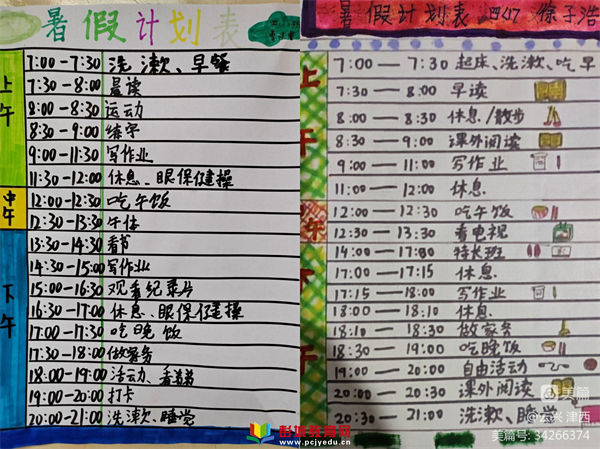 暑假计划表
上午
7:00-7:30 洗漱、早餐
7:30-8:00 晨读
8:00-8:30 运动
8:30-9:00 练字
9:00-11:30 写作业
11:30-12:00 休息、眼保健操
中午
12:00-12:30 吃午饭
12:30-13:30 午休
下午
13:30-14:30 看书
14:30-15:00 写作业
15:00-16:30 观看纪录片
16:30-17:00 休息、眼保仔健操
17:00-17:30 吃晚饭
17:30-18:00 做家务
18:00-19:00 活动、看弟弟
19:00-20:00 打卡
20:00-21:00 洗漱、睡觉
彭城教育网
www.pcjyedu.cn
暑假计划表 四(17) 徐子浩
上午
7:00—7:30 起床、洗漱、吃早
7:30—8:00 早读
8:00—8:30 休息/散步
8:30—9:00 课外阅读
9:00—11:00 写作业
11:00—12:00 休息
午
12:00—12:30 吃午饭
12:30—13:30 看电视
下午
14:00—17:00 特长班
17:00—17:15 休息
17:15—18:00 写作业
18:00—18:10 休息
18:10—18:30 做家务
18:30—19:00 吃晚饭
19:00—20:00 自由活动
20:00—20:30 课外阅读
20:30—21:00 洗漱、睡觉
美篇
@云米 津西
美篇号: 34266374